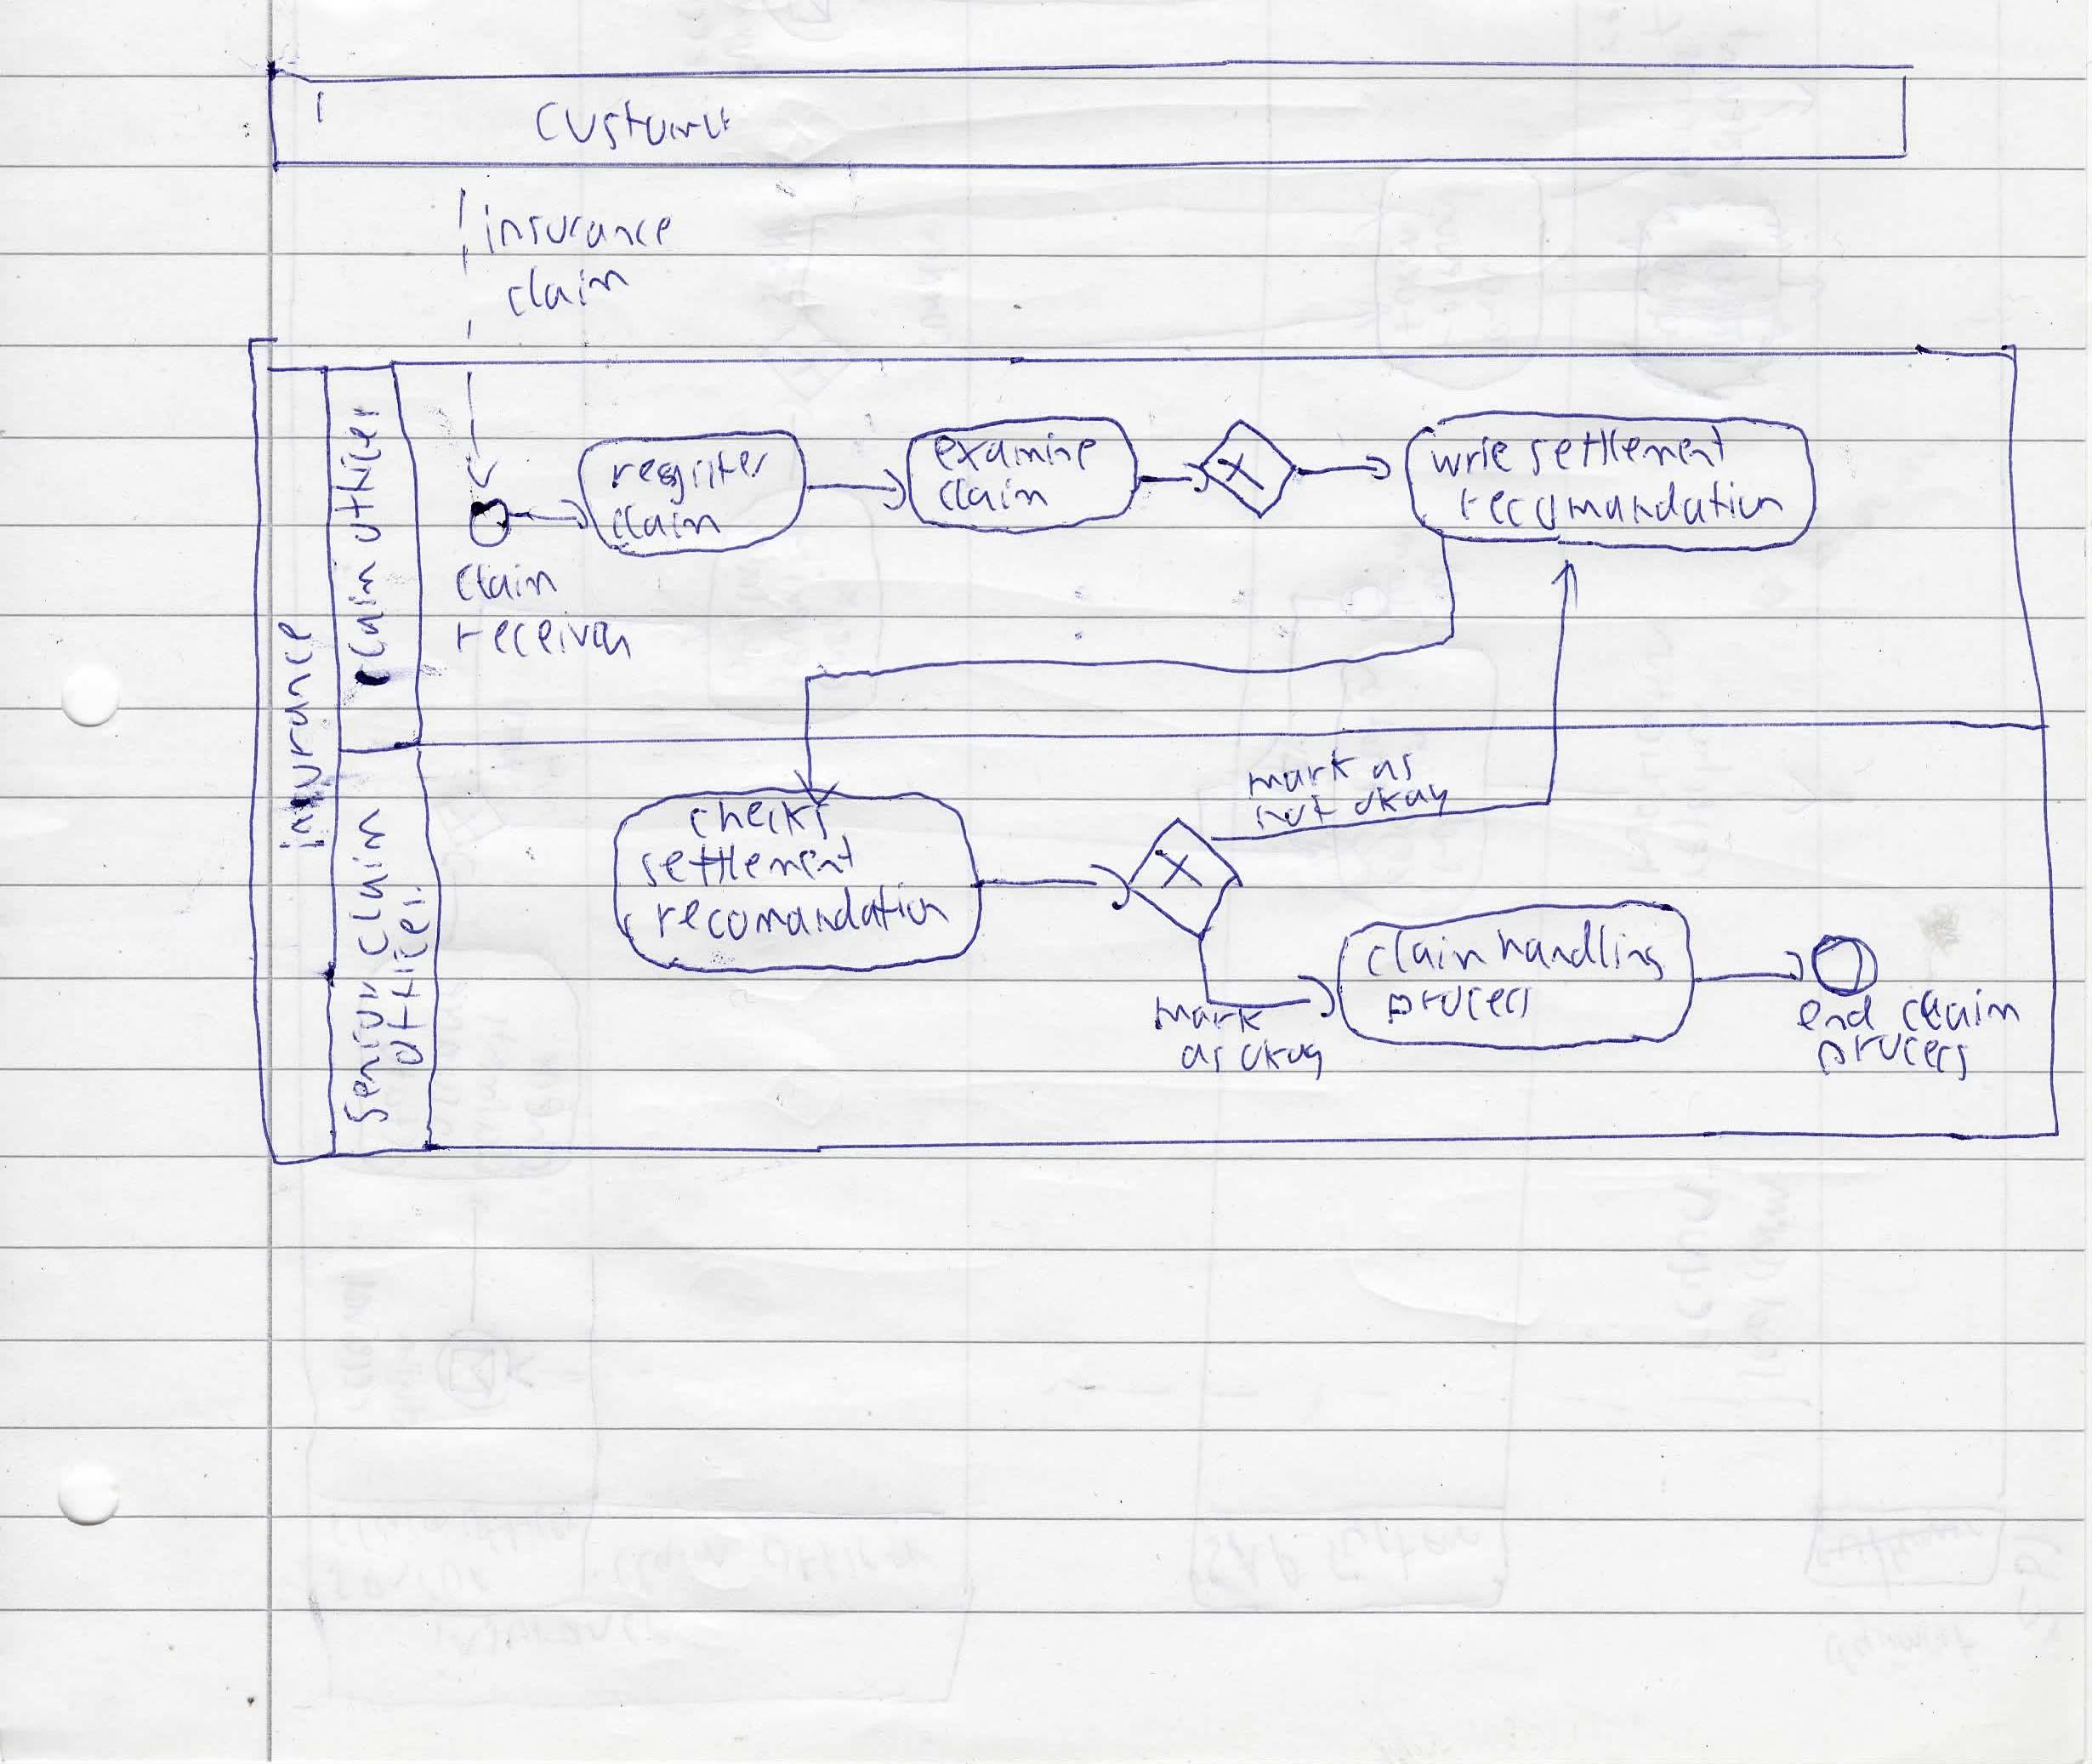 insurance
claim
insurance
claim officer
register
claim
examine
claim
X
settlement
recomandation
claim
senior claim
officer
checks
settlement
recomandation
X
mark as
not okay
mark
as okay
claim handling
process
end claim
process